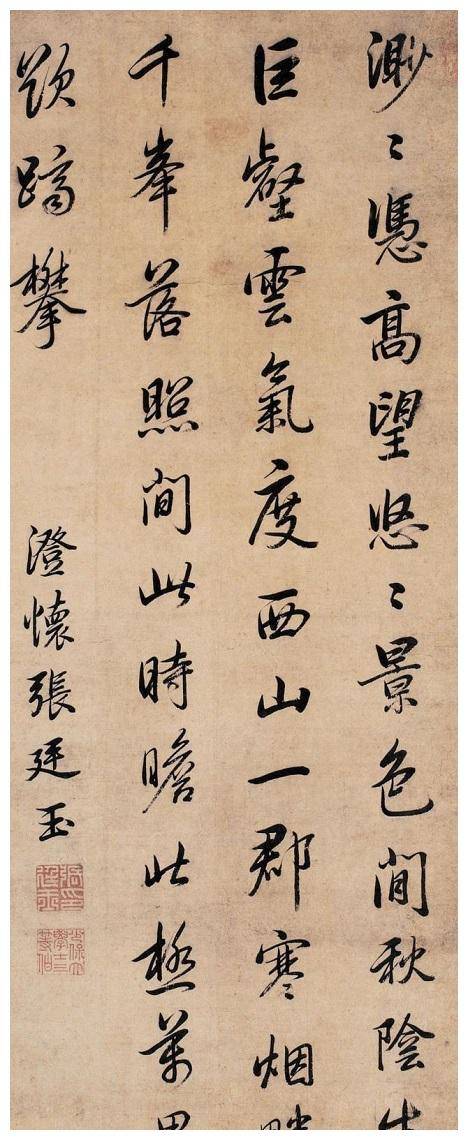 渺〻憑高望悠〻景色閒秋陰
巨壑雲氣度西山一郡寒烟
千峯落照間此時瞻此極萬里
欲躋攀
澄懷張廷玉